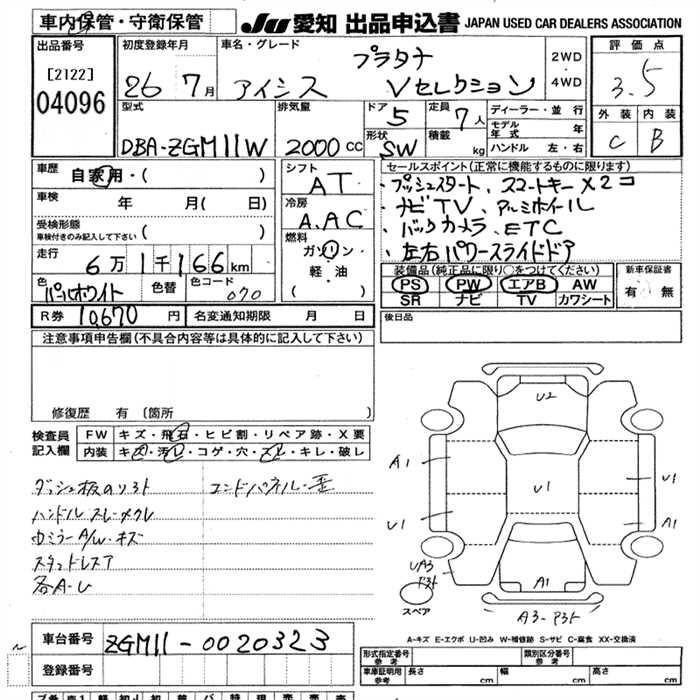 車内保管・守衛保管 JU 愛知 出品申込書 JAPAN USED CAR DEALERS ASSOCIATION
出品番号 初度登録年月 車名・グレード 評価点
[2122] 26 7月 アイシス プラタナ Vセレクション 2WD 4WD 3.5
04096 型式 排気量 ドア 定員 ディーラー・並行 外装 内装
DBA-ZGM11W 2000 CC 5 7人 モデル年式 年 C B
形状 SW 積載 kg ハンドル 左・右
車歴 自家用・( ) シフト AT セールスポイント(正常に機能するものに限ります)
・プッシュスタート、スマートキー×2コ
車検 年 月( 日) 冷房 A.AC
・ナビTV、アルミホイル
受検形態 車検付きのみ記入して下さい ( )
・バックカメラ、ETC
燃料 ガソリン・軽・油 ( )
・左右パワースライドドア
走行 6万1千166km
装備品(純正品に限り○をつけてください) 新車保証書
色 パールホワイト 色替 色コード 070
PS PW エアB AW 有 無
SR ナビ TV カワシート
R券 10,670円 名変通知期限 月 日 後日品
注意事項申告欄(不具合内容等は具体的に記入して下さい)
修復歴 有 (箇所 )
検査員記入欄 FW キズ・飛石・ヒビ割・リペア跡・X要
内装 キズ・汚レ・コゲ・穴・スレ・キレ・破レ
ダッシュ板のリ外ト エンドパネル・歪
ハンドルスレ・メクレ
ウミラーA/W・キズ
スタッドレスア
各A・U
U2
A1
U1
U1
A1
UA3
A1
スペア
A-キズ E-エクボ U-凹み W-補修跡 S-サビ C-腐食 XX-交換済
車台番号 ZGM11-0020323
形式指定番号 参考 類別区分番号 参考
登録番号 車庫証明用 参考 長さ cm 幅 cm 高さ cm